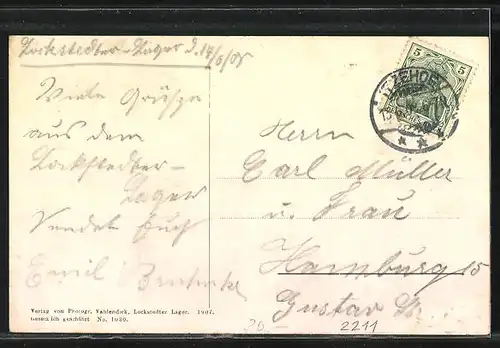 Lockstedter-Lager d. 14/6/08
Viele Grüße
aus dem
Lockstedter-
Lager
Sendet Euch
Emil
ITZEHOE
5 5
Herrn
Carl Müller
u. Frau
Hamburg 15
Gustav
Verlag von Photogr. Vahlendiek, Lockstedter Lager. 1907.
Gesetzlich geschützt No. 1030.
20 2211